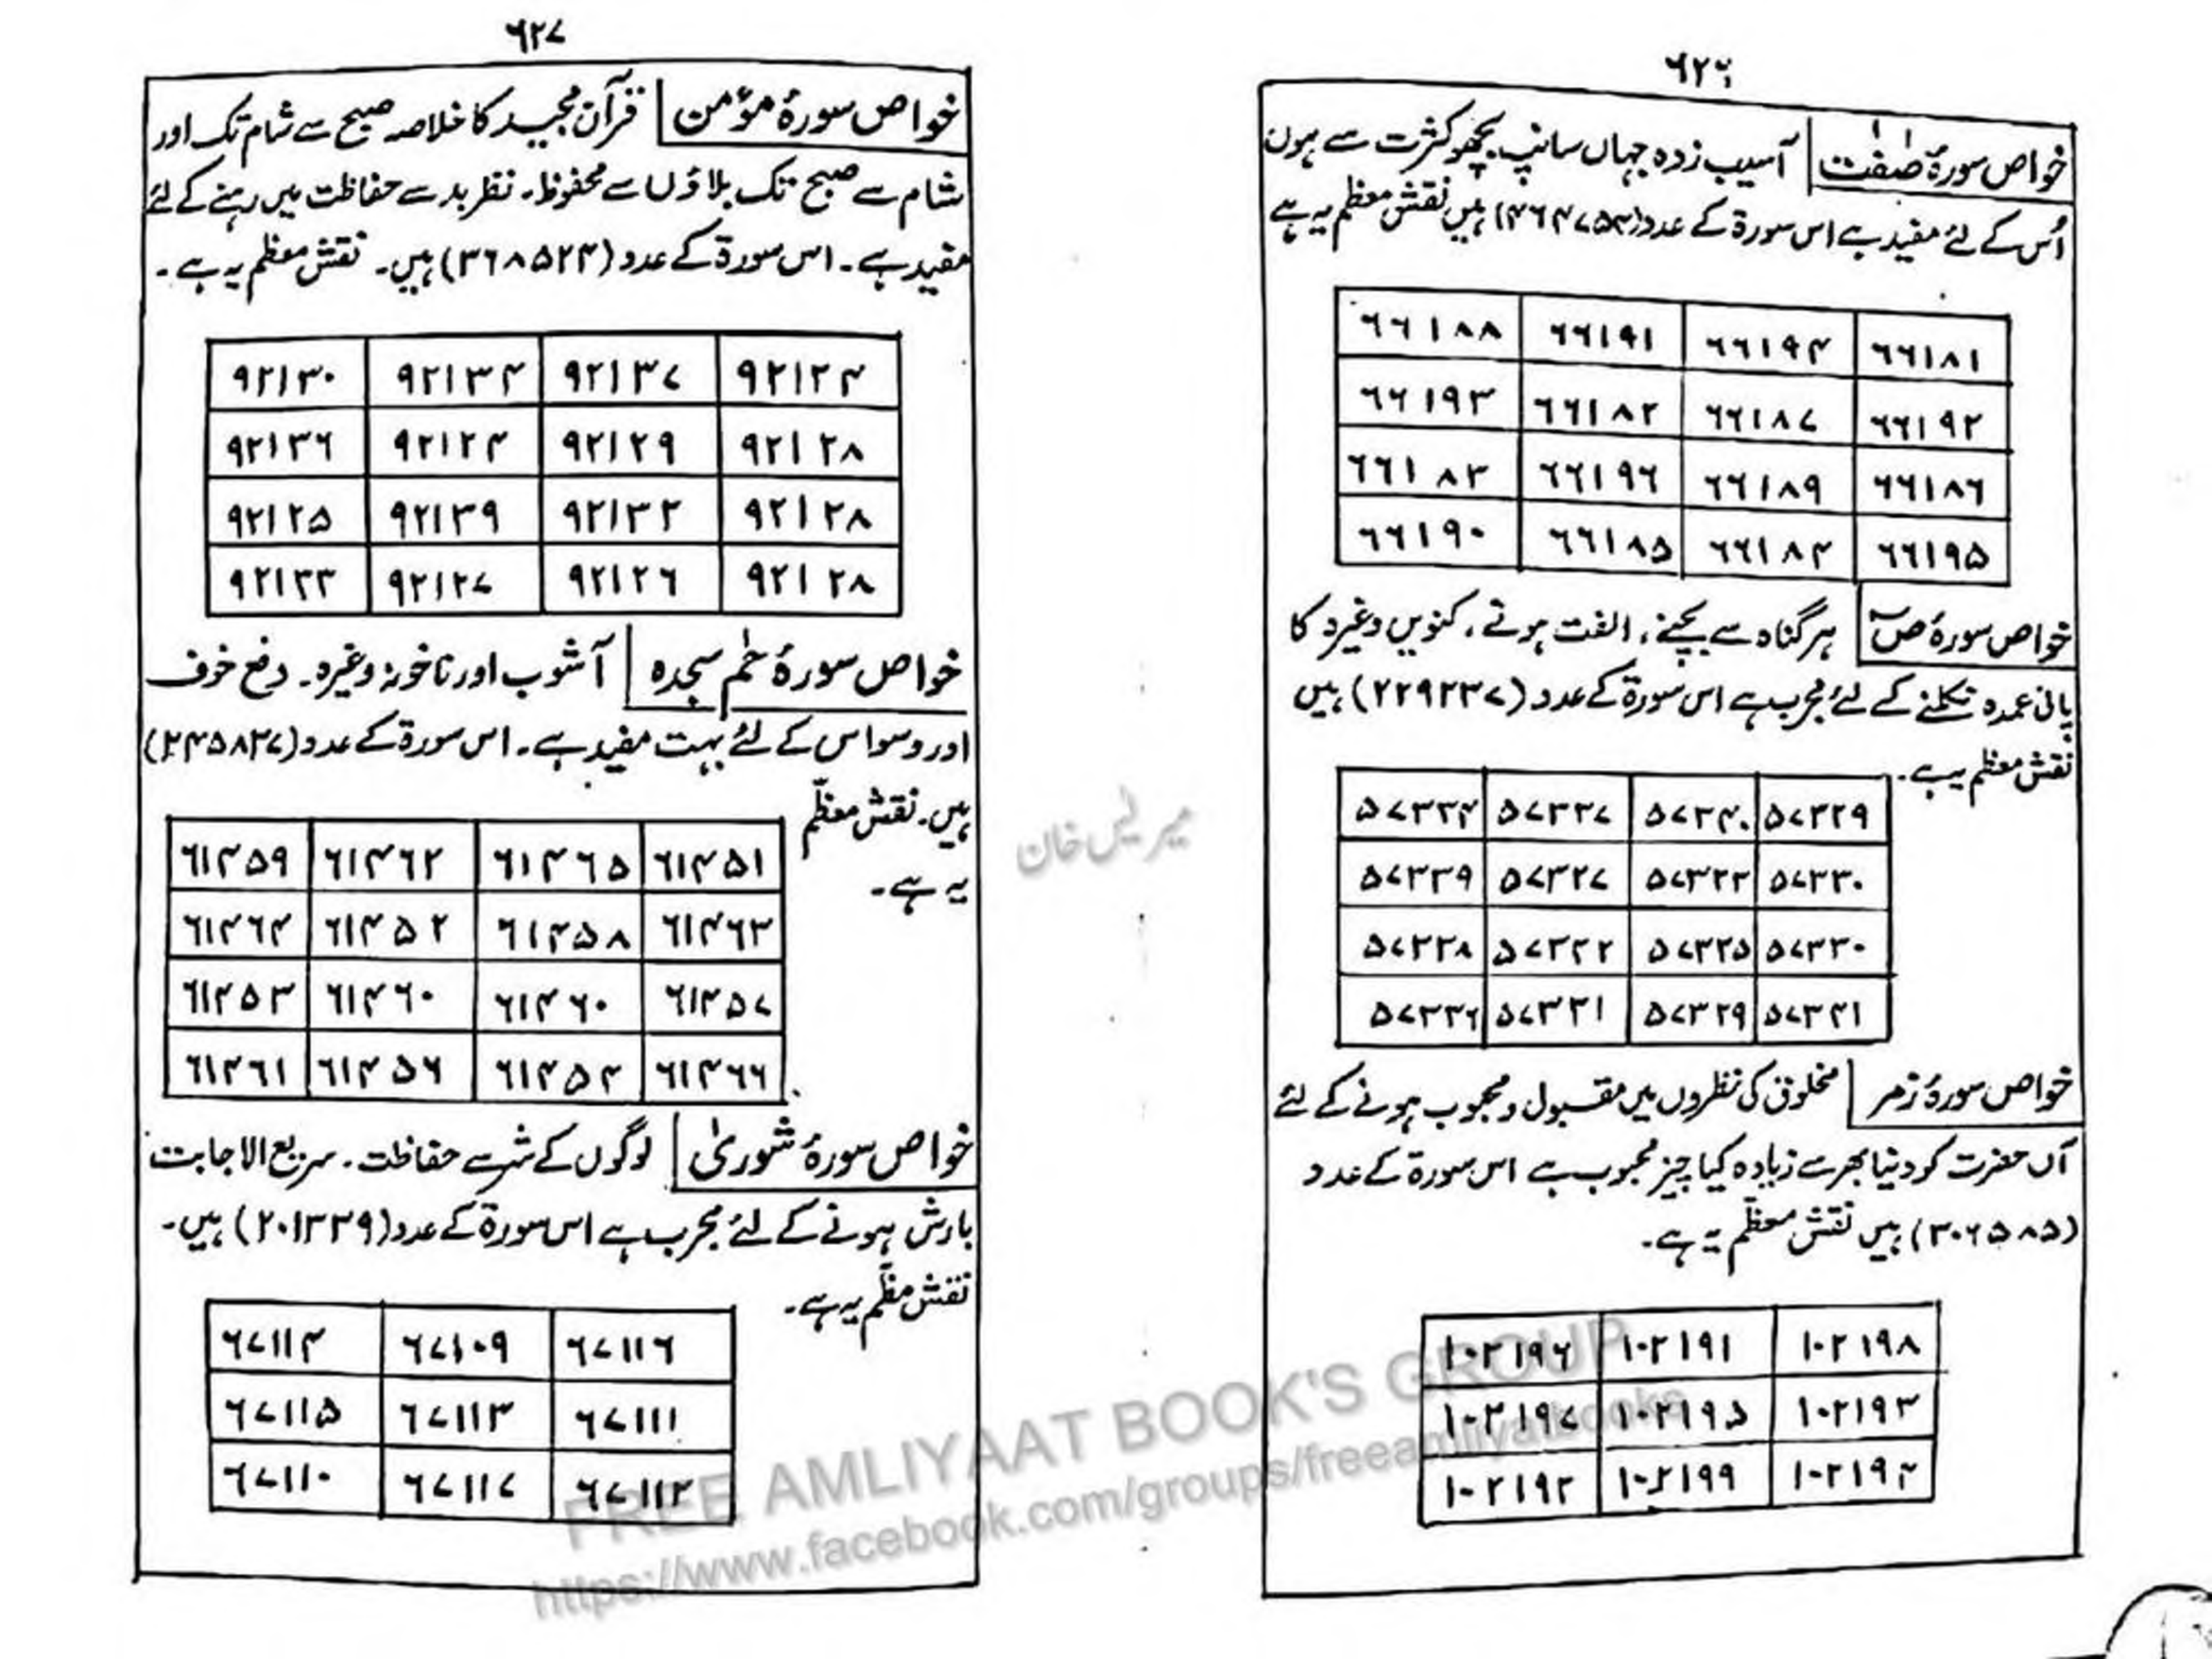 ۶۲۶
خواص سورۂ صٰفٰت آسیب زدہ جہاں سانپ بچھو کثرت سے ہوں
اُس کے لئے مفید ہے اس سورۃ کے عدد (۴۶۴۷۵۴) ہیں نقش معظم یہ ہے
۶۶۱۸۸ ۶۶۱۹۱ ۶۶۱۹۴ ۶۶۱۸۱
۶۶۱۹۳ ۶۶۱۸۲ ۶۶۱۸۷ ۶۶۱۹۲
۶۶۱۸۳ ۶۶۱۹۶ ۶۶۱۸۹ ۶۶۱۸۶
۶۶۱۹۰ ۶۶۱۸۵ ۶۶۱۸۴ ۶۶۱۹۵
خواص سورۂ صٓ ہر گناہ سے بچنے، الفت ہوتے، کنویں وغیرہ کا
پانی عمدہ نکلنے کے لئے مجرب ہے اس سورۃ کے عدد (۲۲۹۲۳۷) ہیں
نقش معظم یہ ہے۔
۵۷۳۳۴ ۵۷۳۳۷ ۵۷۳۴۰ ۵۷۳۲۹
۵۷۳۳۹ ۵۷۳۲۷ ۵۷۳۲۳ ۵۷۳۳۰
۵۷۳۳۸ ۵۷۳۴۲ ۵۷۳۲۵ ۵۷۳۳۰
۵۷۳۳۶ ۵۷۳۳۱ ۵۷۳۲۹ ۵۷۳۴۱
خواص سورۂ زمر مخلوق کی نظروں میں مقبول و محبوب ہونے کے لئے
آں حضرت کو دنیا بھر سے زیادہ کیا چیز محبوب ہے اس سورۃ کے عدد
(۳۰۶۵۸۵) ہیں نقش معظم یہ ہے۔
۱۰۲۱۹۶ ۱۰۲۱۹۱ ۱۰۲۱۹۸
۱۰۲۱۹۷ ۱۰۲۱۹۵ ۱۰۲۱۹۳
۱۰۲۱۹۲ ۱۰۲۱۹۹ ۱۰۲۱۹۴
۶۲۷
خواص سورۂ مؤمن قرآن مجید کا خلاصہ صبح سے شام تک اور
شام سے صبح تک بلاؤں سے محفوظ۔ نظر بد سے حفاظت میں رہنے کے لئے
مفید ہے۔ اس سورۃ کے عدد (۳۶۸۵۲۴) ہیں۔ نقش معظم یہ ہے۔
۹۲۱۳۰ ۹۲۱۳۴ ۹۲۱۳۷ ۹۲۱۲۴
۹۲۱۳۶ ۹۲۱۲۴ ۹۲۱۲۹ ۹۲۱۲۸
۹۲۱۲۵ ۹۲۱۳۹ ۹۲۱۳۲ ۹۲۱۲۸
۹۲۱۳۳ ۹۲۱۲۷ ۹۲۱۲۶ ۹۲۱۲۸
خواص سورۂ حٰم سجدہ آشوب اور ناخونہ وغیرہ۔ دفع خوف
اور وسواس کے لئے بہت مفید ہے۔ اس سورۃ کے عدد (۲۴۵۸۳۷)
ہیں۔ نقش معظّم
یہ ہے۔
۶۱۴۵۹ ۶۱۴۶۲ ۶۱۴۶۵ ۶۱۴۵۱
۶۱۴۶۴ ۶۱۴۵۲ ۶۱۴۵۸ ۶۱۴۶۳
۶۱۴۵۳ ۶۱۴۶۰ ۶۱۴۶۰ ۶۱۴۵۷
۶۱۴۶۱ ۶۱۴۵۶ ۶۱۴۵۴ ۶۱۴۶۶
خواص سورۂ شوریٰ لوگوں کے شر سے حفاظت۔ سریع الاجابت
بارش ہونے کے لئے مجرب ہے اس سورۃ کے عدد (۲۰۱۳۳۹) ہیں۔
نقش معظّم یہ ہے۔
۶۷۱۱۴ ۶۷۱۰۹ ۶۷۱۱۶
۶۷۱۱۵ ۶۷۱۱۳ ۶۷۱۱۱
۶۷۱۱۰ ۶۷۱۱۷ ۶۷۱۱۲
FREE AMLIYAAT BOOK'S GROUP
https://www.facebook.com/groups/freeamliyatbooks